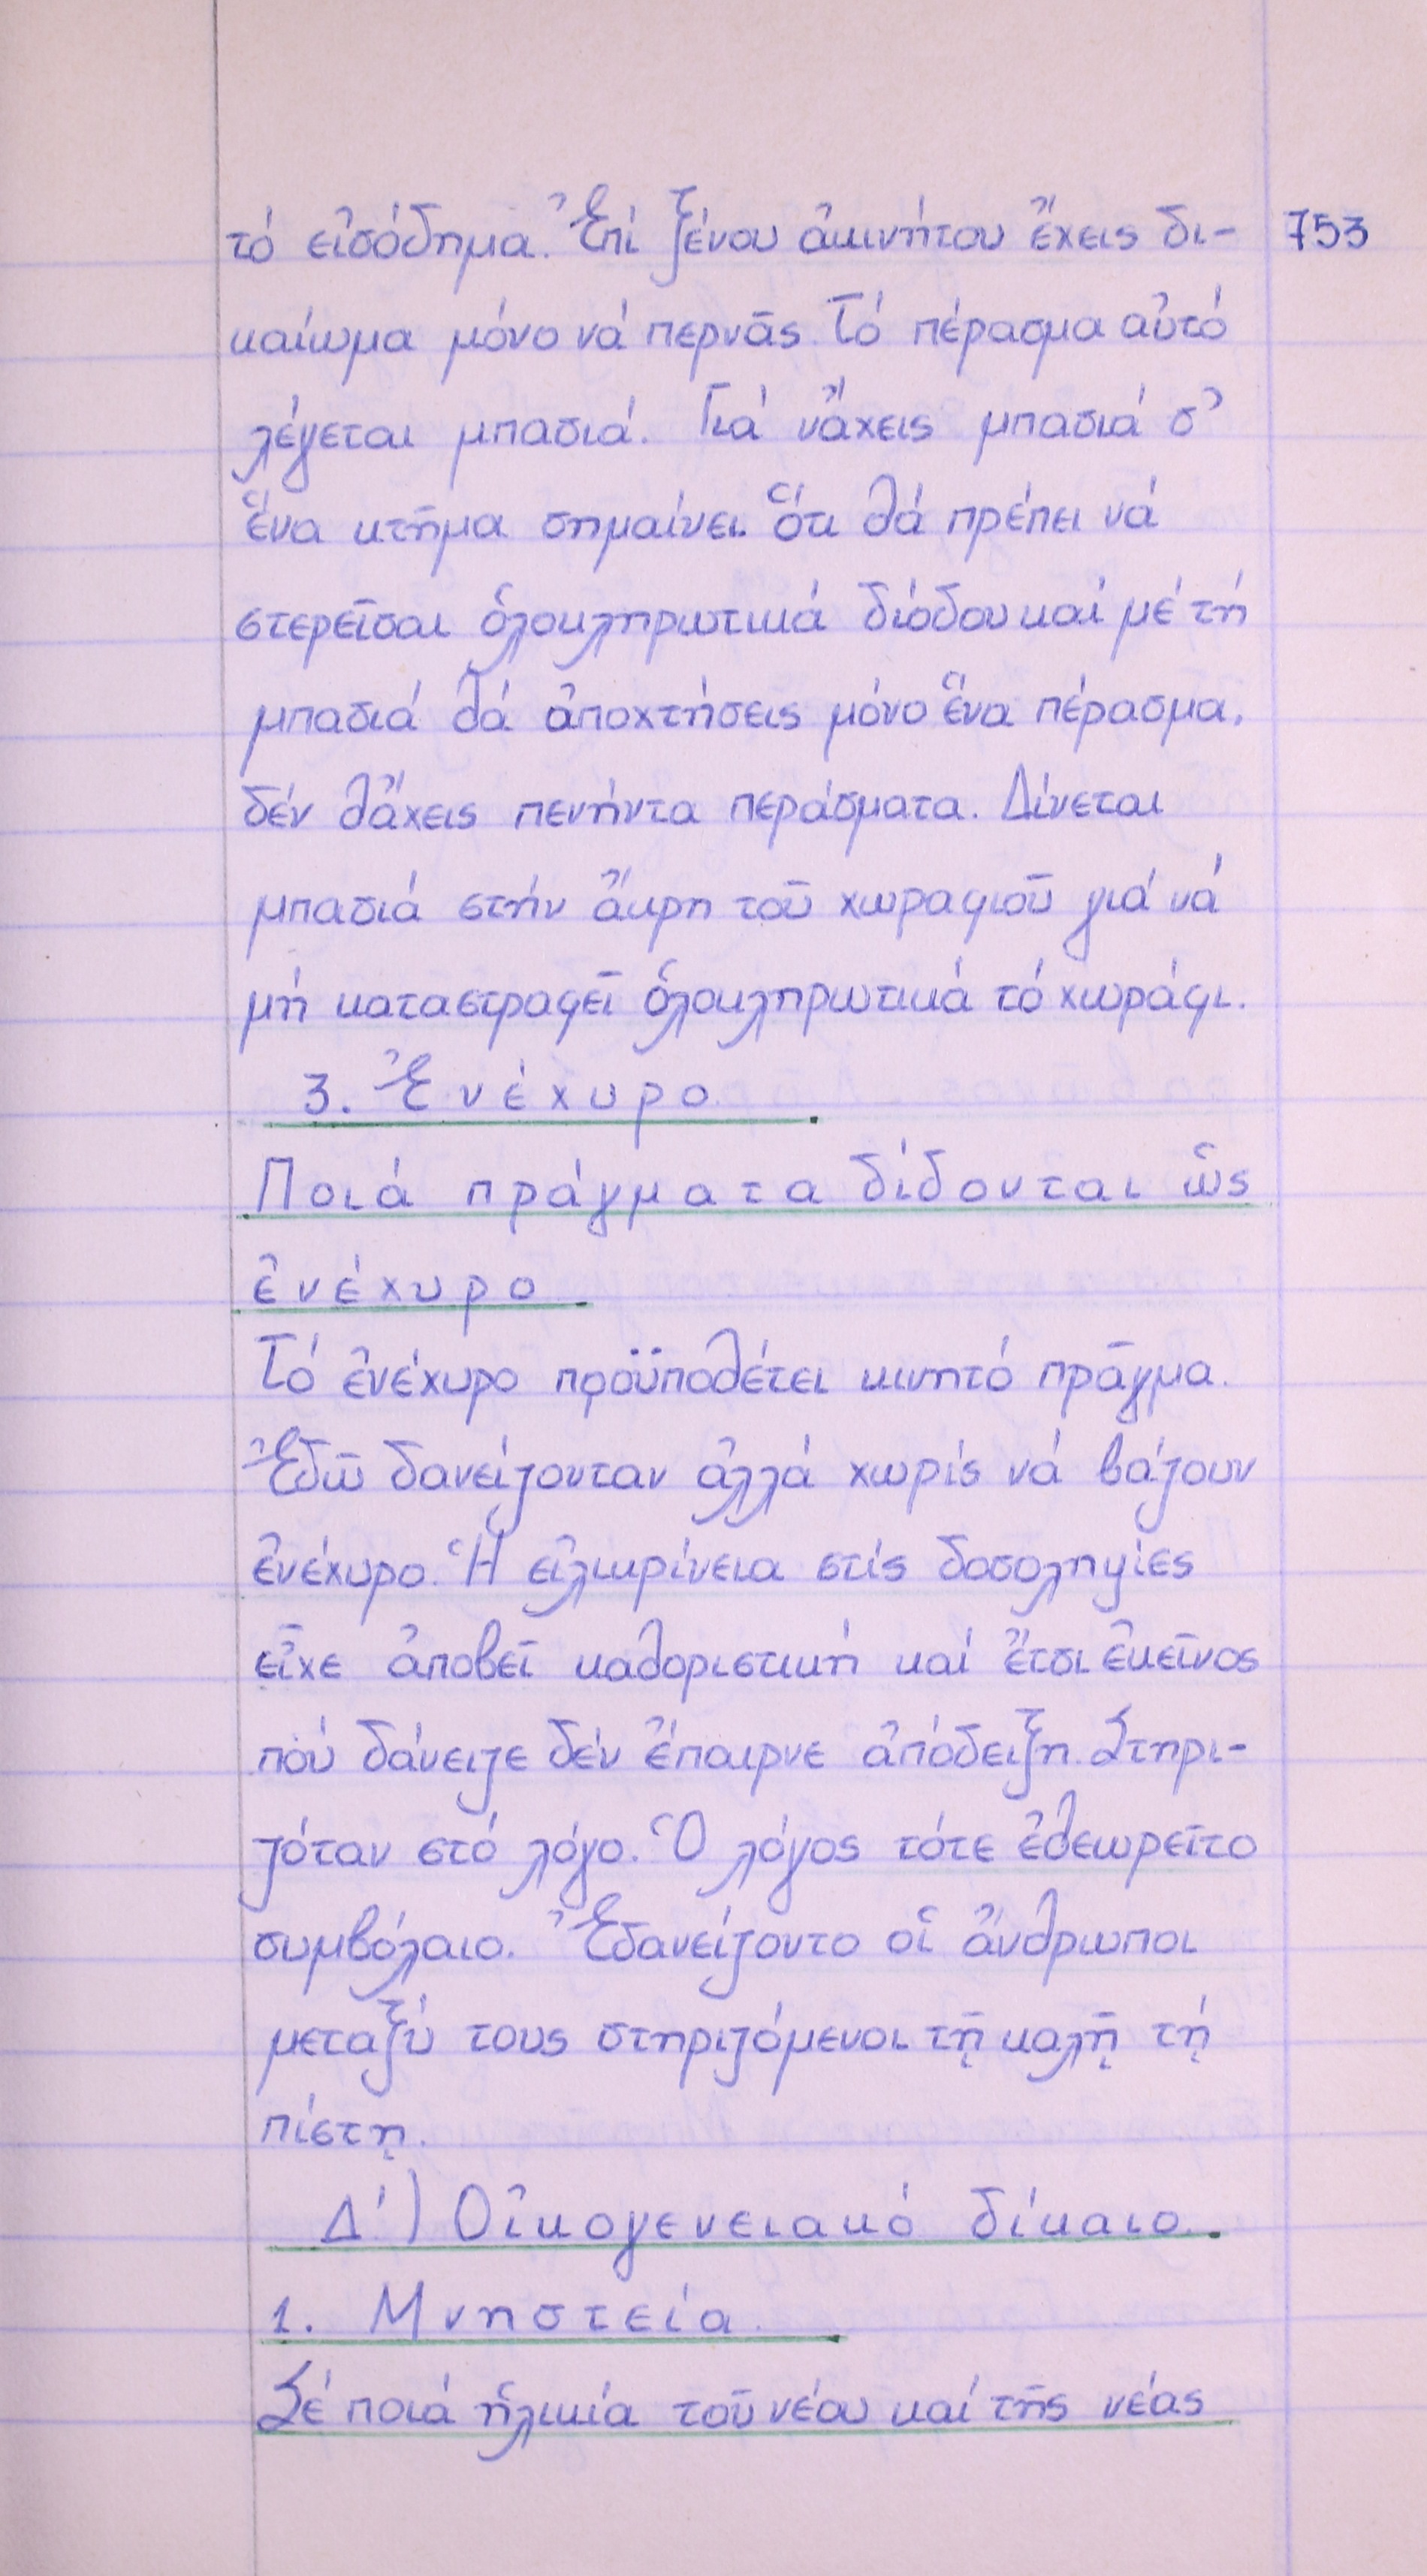 τό εἰσόδημα. Ἐπί ξένου ἀκινήτου ἔχεις δι- 753
καίωμα μόνο νά περνᾶς. Τό πέρασμα αὐτό
λέγεται μπασιά. Γιά νἄχεις μπασιά σ᾿
ἕνα κτῆμα σημαίνει ὅτι θά πρέπει νά
στερεῖσαι ὁλοκληρωτικά διόδου καί μέ τή
μπασιά θά ἀποχτήσεις μόνο ἕνα πέρασμα,
δέν θἄχεις πενήντα περάσματα. Δίνεται
μπασιά στήν ἄκρη τοῦ χωραφιοῦ γιά νά
μή καταστραφεῖ ὁλοκληρωτικά τό χωράφι.
3. Ἐνέχυρο
Ποιά πράγματα δίδονται ὡς
ἐνέχυρο
Τό ἐνέχυρο προϋποθέτει κινητό πρᾶγμα.
Ἐδῶ δανείζονταν ἀλλά χωρίς νά βάζουν
ἐνέχυρο. Ἡ εἰλικρίνεια στίς δοσοληψίες
εἶχε ἀποβεῖ καθοριστική καί ἔτσι ἐκεῖνος
πού δάνειζε δέν ἔπαιρνε ἀπόδειξη. Στηρι-
ζόταν στό λόγο. Ὁ λόγος τότε ἐθεωρεῖτο
συμβόλαιο. Ἐδανείζοντο οἱ ἄνθρωποι
μεταξύ τους στηριζόμενοι τῇ καλῇ τῇ
πίστῃ.
Δ΄) Οἰκογενειακό δίκαιο.
1. Μνηστεία.
Σέ ποιά ἡλικία τοῦ νέου καί τῆς νέας